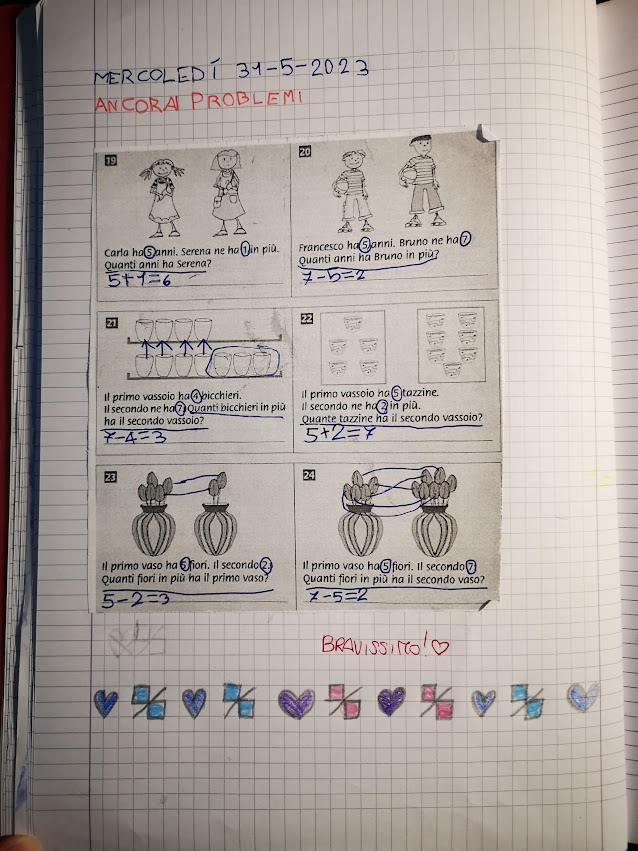 MERCOLEDÍ 31-5-2023
ANCORA PROBLEMI
19
Carla ha 5 anni. Serena ne ha 1 in più.
Quanti anni ha Serena?
5+1=6
20
Francesco ha 5 anni. Bruno ne ha 7
Quanti anni ha Bruno in più?
7-5=2
21
Il primo vassoio ha 4 bicchieri.
Il secondo ne ha 7. Quanti bicchieri in più
ha il secondo vassoio?
7-4=3
22
Il primo vassoio ha 5 tazzine.
Il secondo ne ha 2 in più.
Quante tazzine ha il secondo vassoio?
5+2=7
23
Il primo vaso ha 5 fiori. Il secondo 2.
Quanti fiori in più ha il primo vaso?
5-2=3
24
Il primo vaso ha 5 fiori. Il secondo 7.
Quanti fiori in più ha il secondo vaso?
7-5=2
BRAVISSIMO!